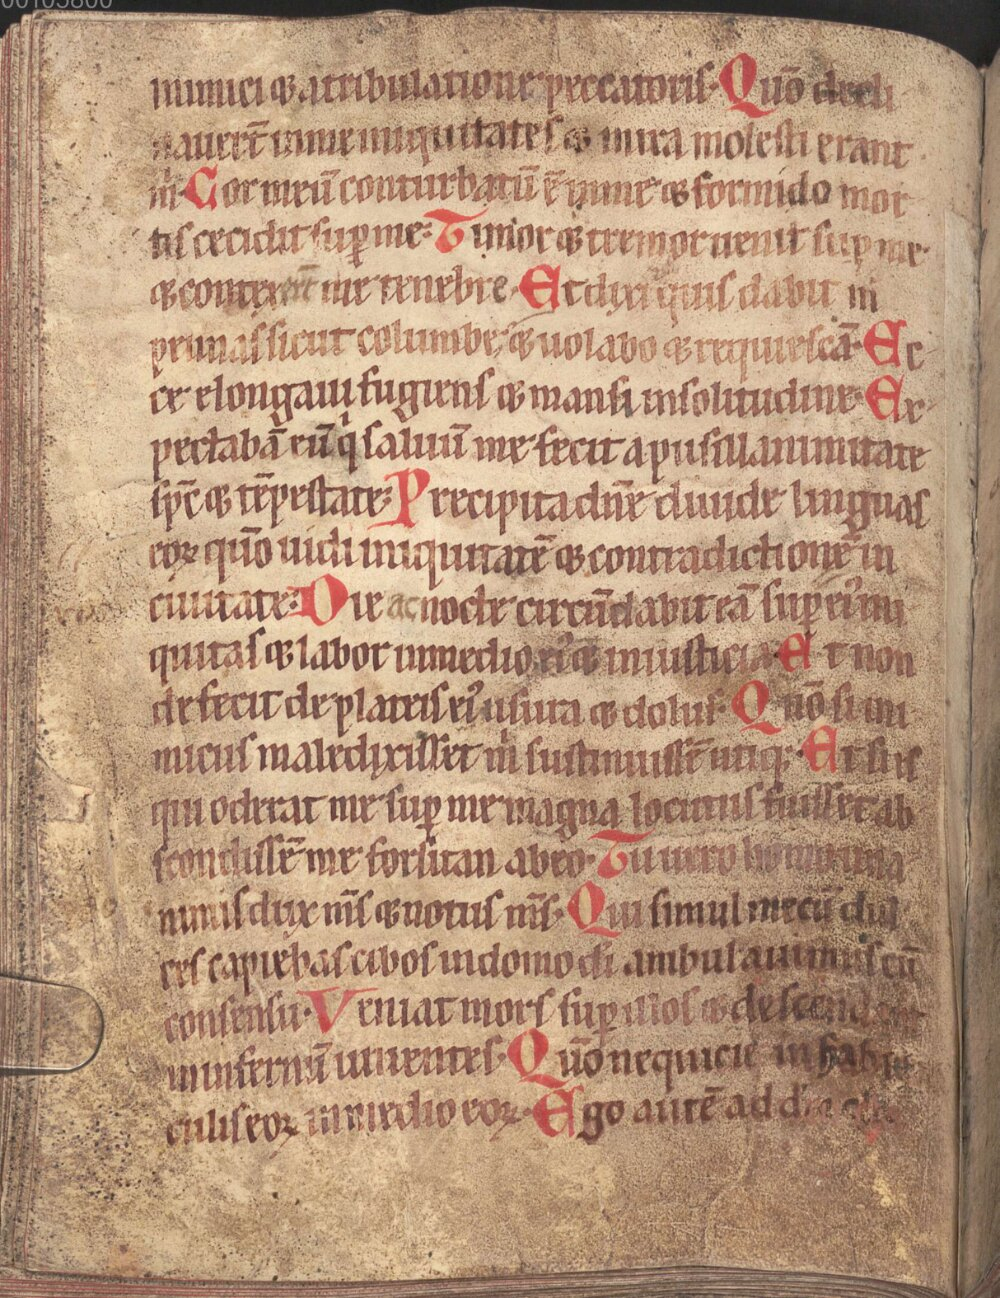 00105800
inimici & a tribulatione peccatoris. Quō decli
nauerūt in me iniquitates & in ira molesti erant
m̄. Cor meū conturbatū ē in me & formido mor
tis cecidit sup me. Timor & tremor uenit sup me
& contexerūt me tenebre. Et dixi quis dabit m̄
pennas sicut columbe, & uolabo & requiescā. Ec
ce elongaui fugiens & mansi in solitudine. Ex
pectabā eū q̄ saluū me fecit a pusillanimitate
spc̄ & tēpestate. Precipita dn̄e diuide linguas
eoꝝ quō uidi iniquitatē & contradictionē in
ciuitate. Die ac nocte circūdabit eā sup ei' ini
quitas & labor in medio ei' & iniusticia. Et non
defecit de plateis ei' usura & dolus. Quō si ini
micus maledixisset m̄ sustinuissē utiq. Et si is
qui oderat me sup me magna locutus fuisset ab
scondissē me forsitan ab eo. Tu uero homo una
nimis dux ms̄ & notus ms̄. Qui simul mecū dul
ces capiebas cibos in domo di ambulauimus cū
consensu. Veniat mors sup illos & descendant
in infernū uiuentes. Quō nequicie in habita
culis eoꝝ in medio eoꝝ. Ego autē ad